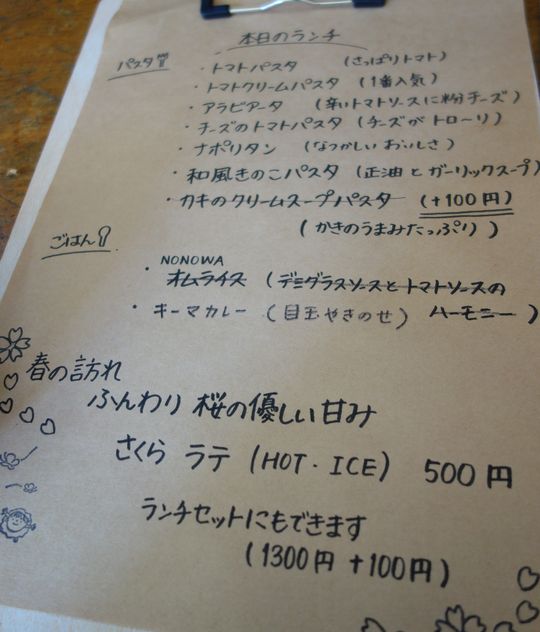 本日のランチ
パスタ
・トマトパスタ (さっぱりトマト)
・トマトクリームパスタ (1番人気)
・アラビアータ (辛いトマトソースに粉チーズ)
・チーズのトマトパスタ (チーズがトローリ)
・ナポリタン (なつかしいおいしさ)
・和風きのこパスタ (正油とガーリックスープ)
・カキのクリームスープパスタ (+100円)
(かきのうまみたっぷり)
ごはん
NONOWA
・オムライス (デミグラスソースとトマトソースの
ハーモニー)
・キーマカレー (目玉やきのせ)
春の訪れ
ふんわり 桜の優しい甘み
さくら ラテ (HOT・ICE) 500円
ランチセットにもできます
(1300円 +100円)